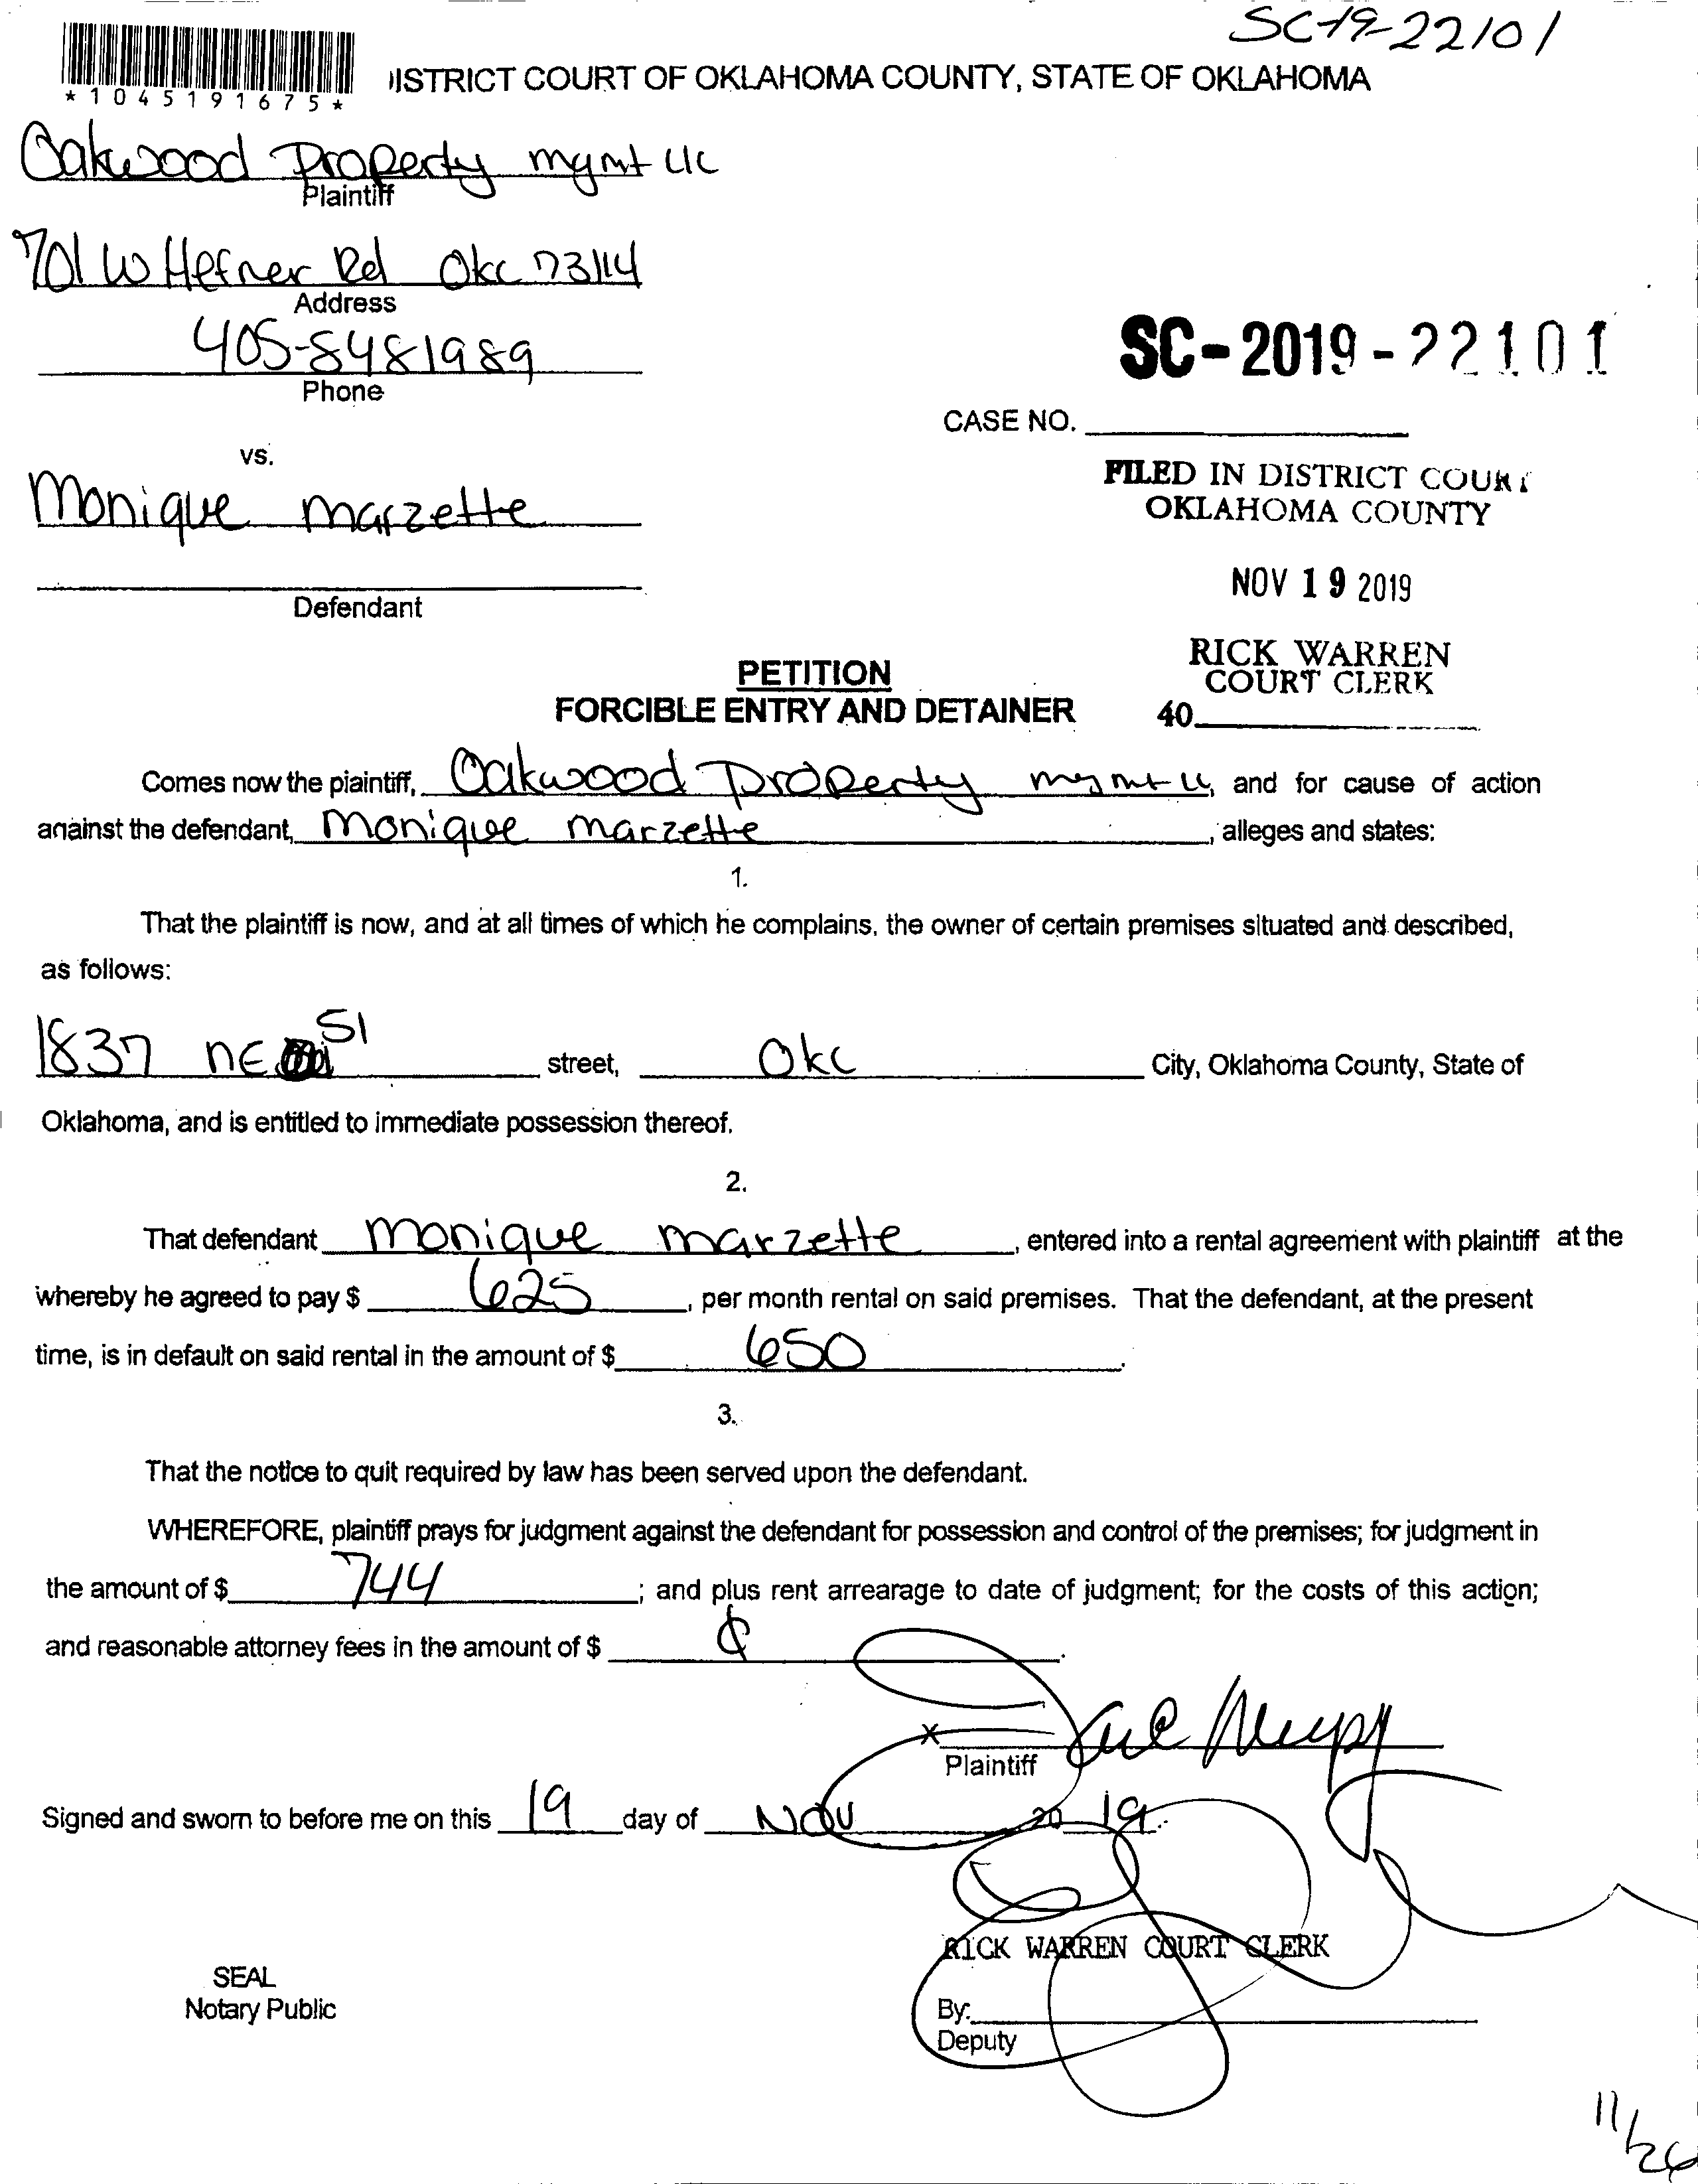 SC-19-22101
*1045191675*
ISTRICT COURT OF OKLAHOMA COUNTY, STATE OF OKLAHOMA
Oakwood Property mgmt llc
Plaintiff
701 W Hefner Rd Okc 73114
Address
405-8481989
Phone
SC-2019-22101
CASE NO.
vs.
Monique Marzette
Defendant
FILED IN DISTRICT COURT
OKLAHOMA COUNTY
NOV 19 2019
RICK WARREN
COURT CLERK
40
PETITION
FORCIBLE ENTRY AND DETAINER
Comes now the plaintiff, Oakwood Property mgmt llc, and for cause of action
against the defendant, Monique Marzette, alleges and states:
1.
That the plaintiff is now, and at all times of which he complains, the owner of certain premises situated and described,
as follows:
1837 NE 51 street, Okc City, Oklahoma County, State of
Oklahoma, and is entitled to immediate possession thereof.
2.
That defendant Monique Marzette, entered into a rental agreement with plaintiff at the
whereby he agreed to pay $ 625, per month rental on said premises. That the defendant, at the present
time, is in default on said rental in the amount of $ 650.
3.
That the notice to quit required by law has been served upon the defendant.
WHEREFORE, plaintiff prays for judgment against the defendant for possession and control of the premises; for judgment in
the amount of $ 744; and plus rent arrearage to date of judgment; for the costs of this action;
and reasonable attorney fees in the amount of $
X
Plaintiff
Signed and sworn to before me on this 19 day of Nov, 20 19.
RICK WARREN COURT CLERK
SEAL
Notary Public
By:
Deputy
11/26